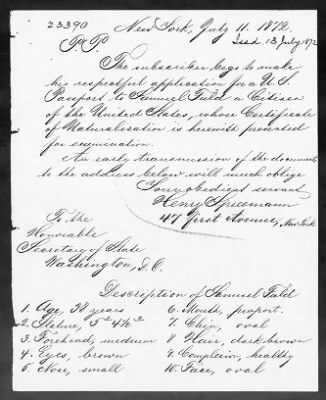 23390
New York, July 11. 1872.
Issd 13 July 1872
P.P.
The subscriber begs to make
his respectful application for a U.S.
Passport to Samuel Fuld a Citizen
of the United States, whose Certificate
of Naturalisation is herewith presented
for examination.
An early transmission of the document
to the address below will much oblige
Your obedient servant
Henry Spreemann
47 First Avenue, New York
To the
Honorable
Secretary of State
Washington, D.C.
Description of Samuel Fuld
1. Age, 38 years
2. Stature, 5" 4½"
3. Forehead, medium
4. Eyes, brown
5. Nose, small
6. Mouth, proport.
7. Chin, oval
8. Hair, dark brown
9. Complexion, healthy
10. Face, oval